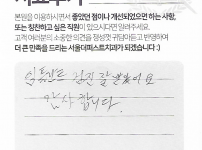 본원을 이용하시면서 좋았던 점이나 개선되었으면 하는 사항,
또는 칭찬하고 싶은 직원이 있으시다면 알려주세요.
고객 여러분의 소중한 의견을 정성껏 귀담아듣고 반영하여
더 큰 만족을 드리는 서울더퍼스트치과가 되겠습니다 :)
임플란트 심전 잘 받았어요
감사합니다.